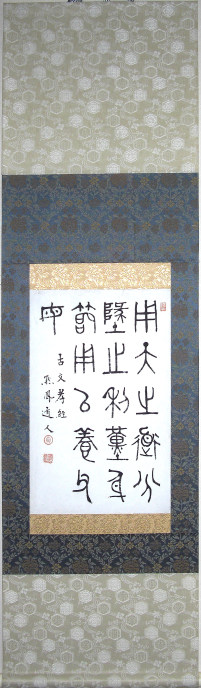 用天之衜分
墬之利堇身
節用以養父
母
古文孝經
道人